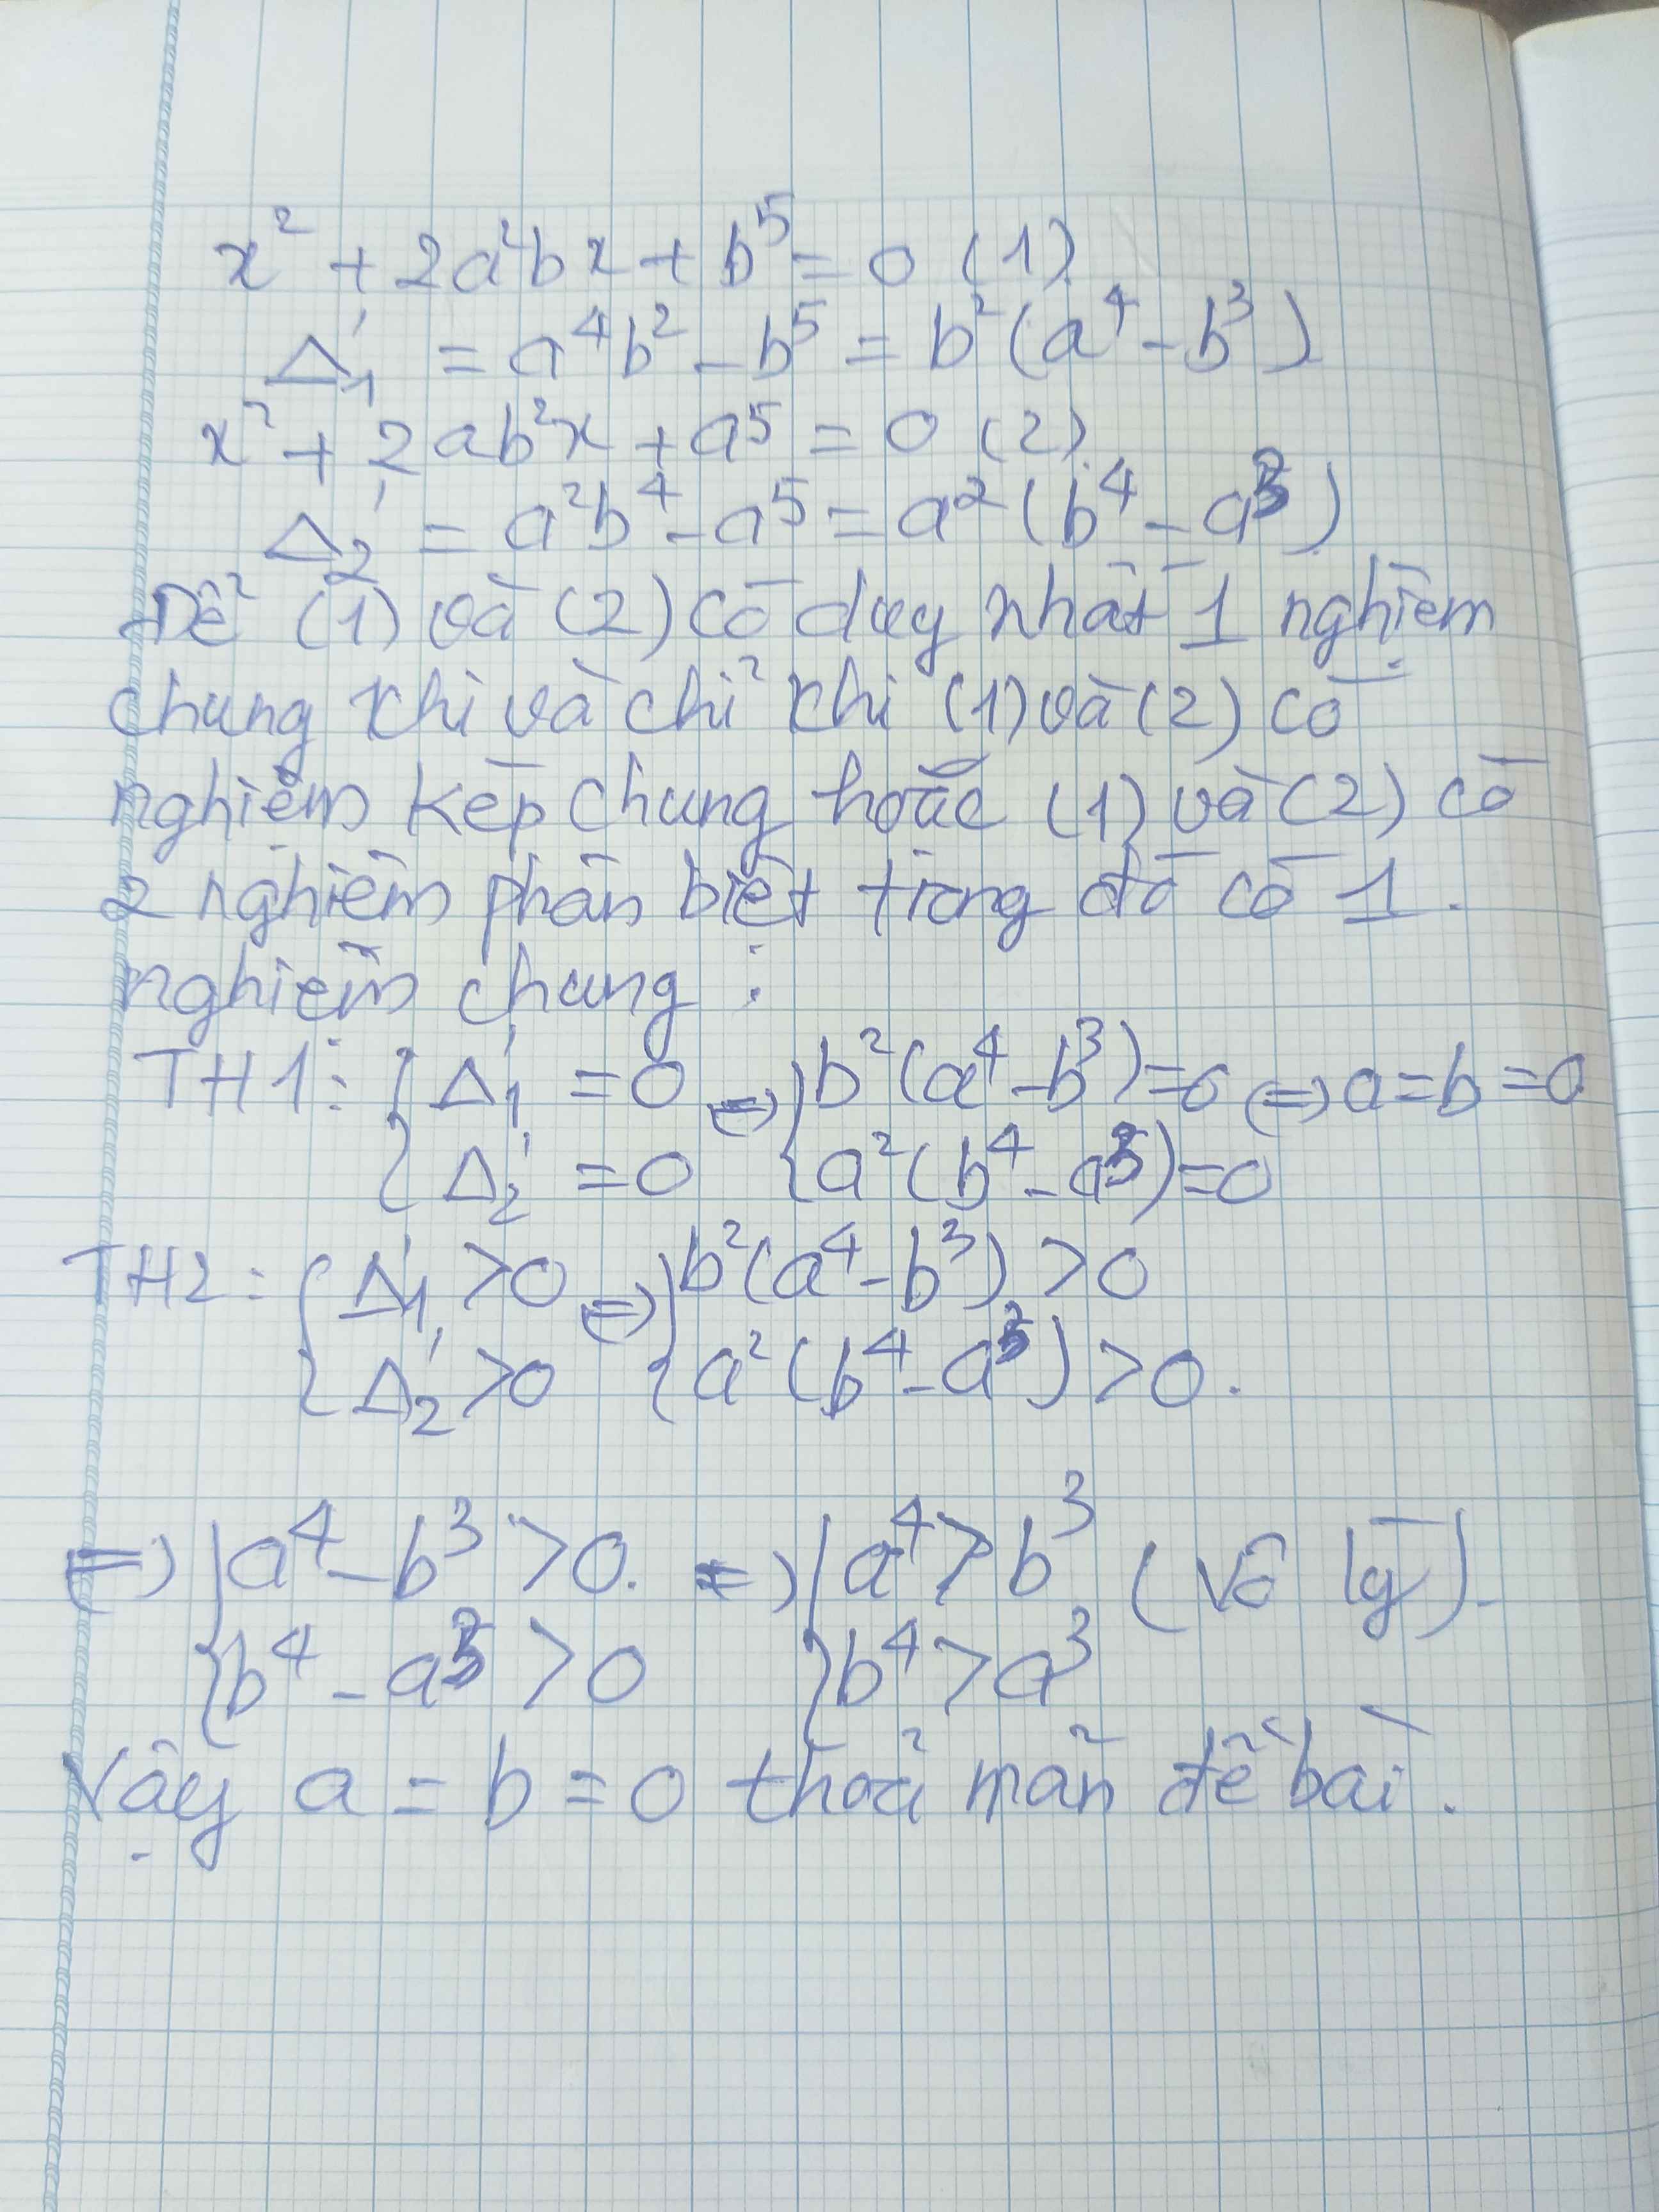 x² + 2a²bx + b⁵ = 0 (1)
Δ₁' = a⁴b² - b⁵ = b²(a⁴ - b³)
x² + 2ab²x + a⁵ = 0 (2)
Δ₂' = a²b⁴ - a⁵ = a²(b⁴ - a³)
Để (1) và (2) có duy nhất 1 nghiệm
chung khi và chỉ khi (1) và (2) có
nghiệm kép chung hoặc (1) và (2) có
2 nghiệm phân biệt trong đó có 1
nghiệm chung :
TH1: { Δ₁' = 0 ⇔ { b²(a⁴ - b³) = 0 ⇔ a = b = 0
{ Δ₂' = 0 { a²(b⁴ - a³) = 0
TH2: { Δ₁' > 0 ⇔ { b²(a⁴ - b³) > 0
{ Δ₂' > 0 { a²(b⁴ - a³) > 0.
⇔ { a⁴ - b³ > 0. ⇔ { a⁴ > b³ (Vô lý).
{ b⁴ - a³ > 0 { b⁴ > a³
Vậy a = b = 0 thoả mãn đề bài.